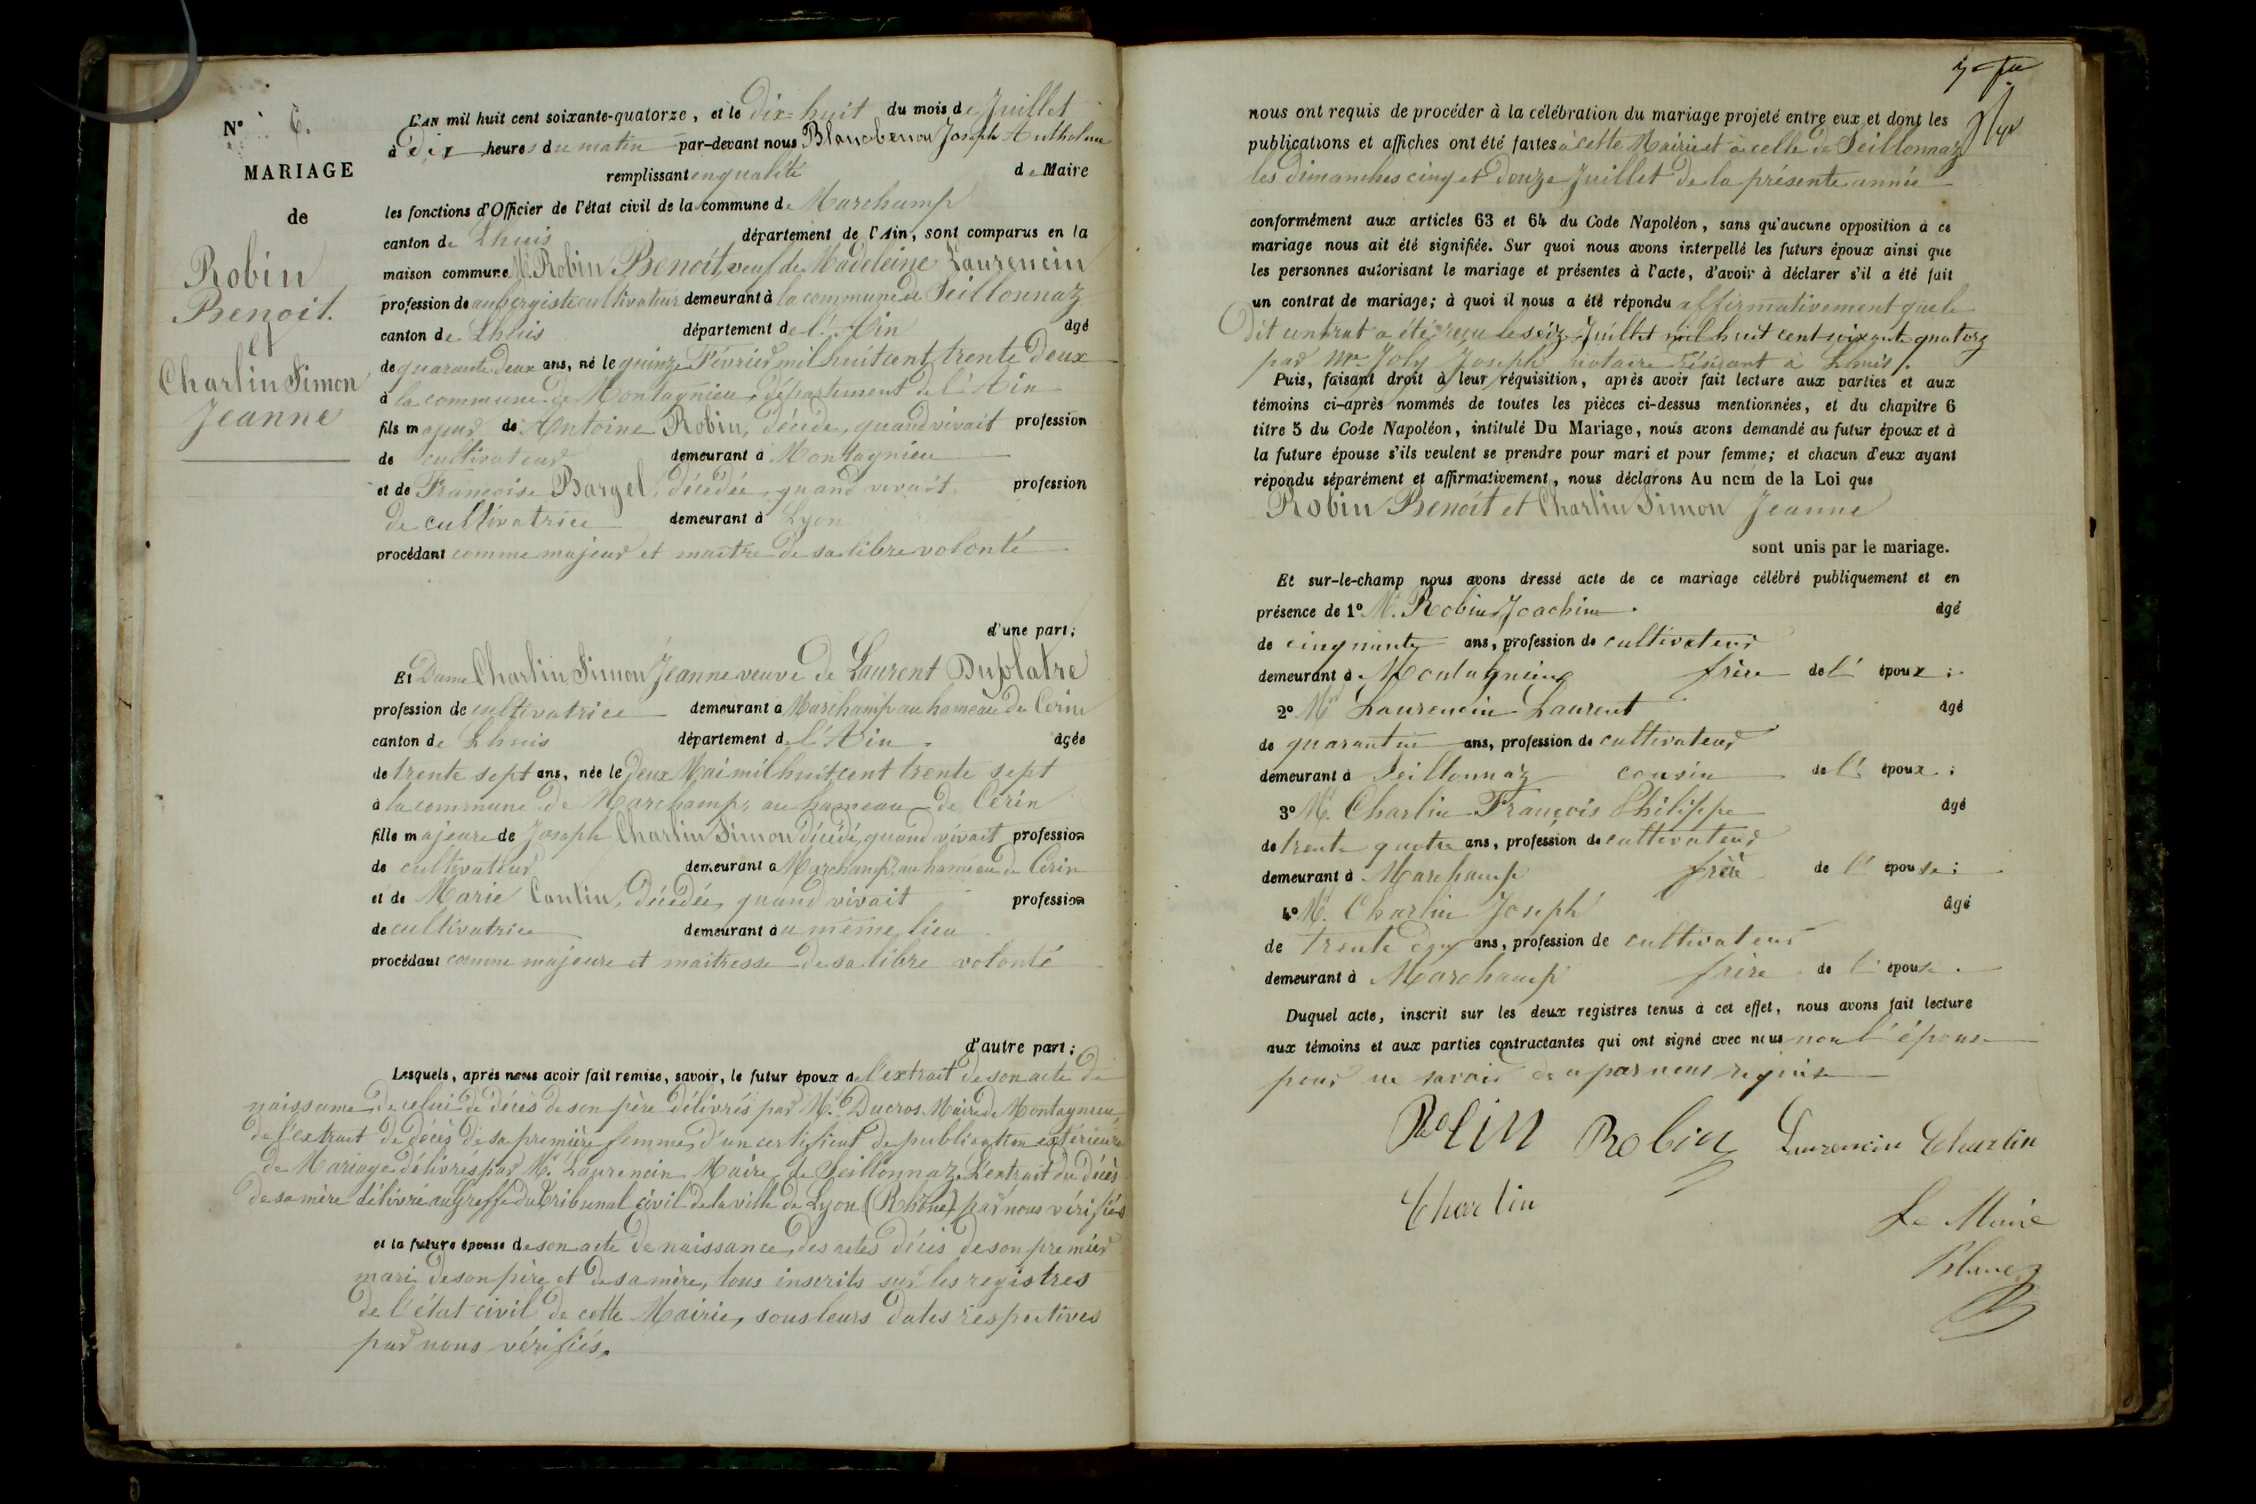 N° 6.
MARIAGE
de
Robin
Benoit.
et
Charlin Simon
Jeanne
L'AN mil huit cent soixante-quatorze, et le dix-huit du mois de Juillet
à dix heures du matin par-devant nous Joseph Anthelme
remplissant en qualité de Maire
les fonctions d'Officier de l'état civil de la commune de Marchamp
canton de Lhuis département de l'Ain, sont comparus en la
maison commune Mr. Robin Benoit veuf de Madeleine Laurencin
profession de aubergiste cultivateur demeurant à la commune de Seillonnaz
canton de Lhuis département de l'Ain âgé
de quarante deux ans, né le quinze Février mil huit cent trente deux
à la commune de Montagnieu, département de l'Ain
fils majeur de Antoine Robin, décédé, quand vivait profession
de cultivateur demeurant à Montagnieu
et de Françoise Bargel, décédée, quand vivait profession
de cultivatrice demeurant à Lyon
procédant comme majeur et maître de sa libre volonté
d'une part;
Et Dame Charlin Simon Jeanne veuve de Laurent Duplatre
profession de cultivatrice demeurant à Marchamp au hameau de Cerin
canton de Lhuis département de l'Ain. âgée
de trente sept ans, née le deux Mai mil huit cent trente sept
à la commune de Marchamp, au hameau de Cerin
fille majeure de Joseph Charlin Simon décédé, quand vivait profession
de cultivateur demeurant à Marchamp, au hameau de Cerin
et de Marie Cantin, décédée, quand vivait profession
de cultivatrice demeurant au même lieu
procédant comme majeure et maitresse de sa libre volonté
d'autre part;
Lesquels, après nous avoir fait remise, savoir, le futur époux de l'extrait de son acte de
naissance de celui de décès de son père délivrés par Mr. Ducros Maire de Montagnieu
de l'extrait de décès de sa première femme, d'un certificat de publication
de Mariage délivrés par Mr. Laurencin Maire de Seillonnaz. L'extrait du décès
de sa mère délivré au Greffe du Tribunal civil de la ville de Lyon (Rhône) par nous vérifiés
et la future épouse de son acte de naissance, des actes décès de son premier
mari, de son père et de sa mère, tous inscrits sur les registres
de l'état civil de cette Mairie, sous leurs dates respectives
par nous vérifiés.
nous ont requis de procéder à la célébration du mariage projeté entre eux et dont les
publications et affiches ont été faites à cette Mairie et à celle de Seillonnaz
les dimanches cinq et douze Juillet de la présente année
conformément aux articles 63 et 64 du Code Napoléon, sans qu'aucune opposition à ce
mariage nous ait été signifiée. Sur quoi nous avons interpellé les futurs époux ainsi que
les personnes autorisant le mariage et présentes à l'acte, d'avoir à déclarer s'il a été fait
un contrat de mariage; à quoi il nous a été répondu affirmativement que le
dit contrat a été reçu le seize Juillet mil huit cent soixante quatorze
par Me Joly Joseph notaire résidant à Lhuis.
Puis, faisant droit à leur réquisition, après avoir fait lecture aux parties et aux
témoins ci-après nommés de toutes les pièces ci-dessus mentionnées, et du chapitre 6
titre 5 du Code Napoléon, intitulé Du Mariage, nous avons demandé au futur époux et à
la future épouse s'ils veulent se prendre pour mari et pour femme; et chacun d'eux ayant
répondu séparément et affirmativement, nous déclarons Au nom de la Loi que
Robin Benoit et Charlin Simon Jeanne
sont unis par le mariage.
Et sur-le-champ nous avons dressé acte de ce mariage célébré publiquement et en
présence de 1° Mr. Robin Joachim. âgé
de ans, profession de cultivateur
demeurant à Montagnieu frère de l' époux;
2° Mr Laurencin Laurent âgé
de ans, profession de cultivateur
demeurant à Seillonnaz cousin de l' époux;
3° Mr. Charlin François Philippe âgé
de trente quatre ans, profession de cultivateur
demeurant à Marchamp frère de l' épouse;
4° Mr. Charlin Joseph âgé
de trente ans, profession de cultivateur
demeurant à Marchamp frère de l' épouse.
Duquel acte, inscrit sur les deux registres tenus à cet effet, nous avons fait lecture
aux témoins et aux parties contractantes qui ont signé avec nous non l'épouse
pour ne savoir de ce par nous requise
Robin Robin Laurencin Charlin
Charlin
Le Maire